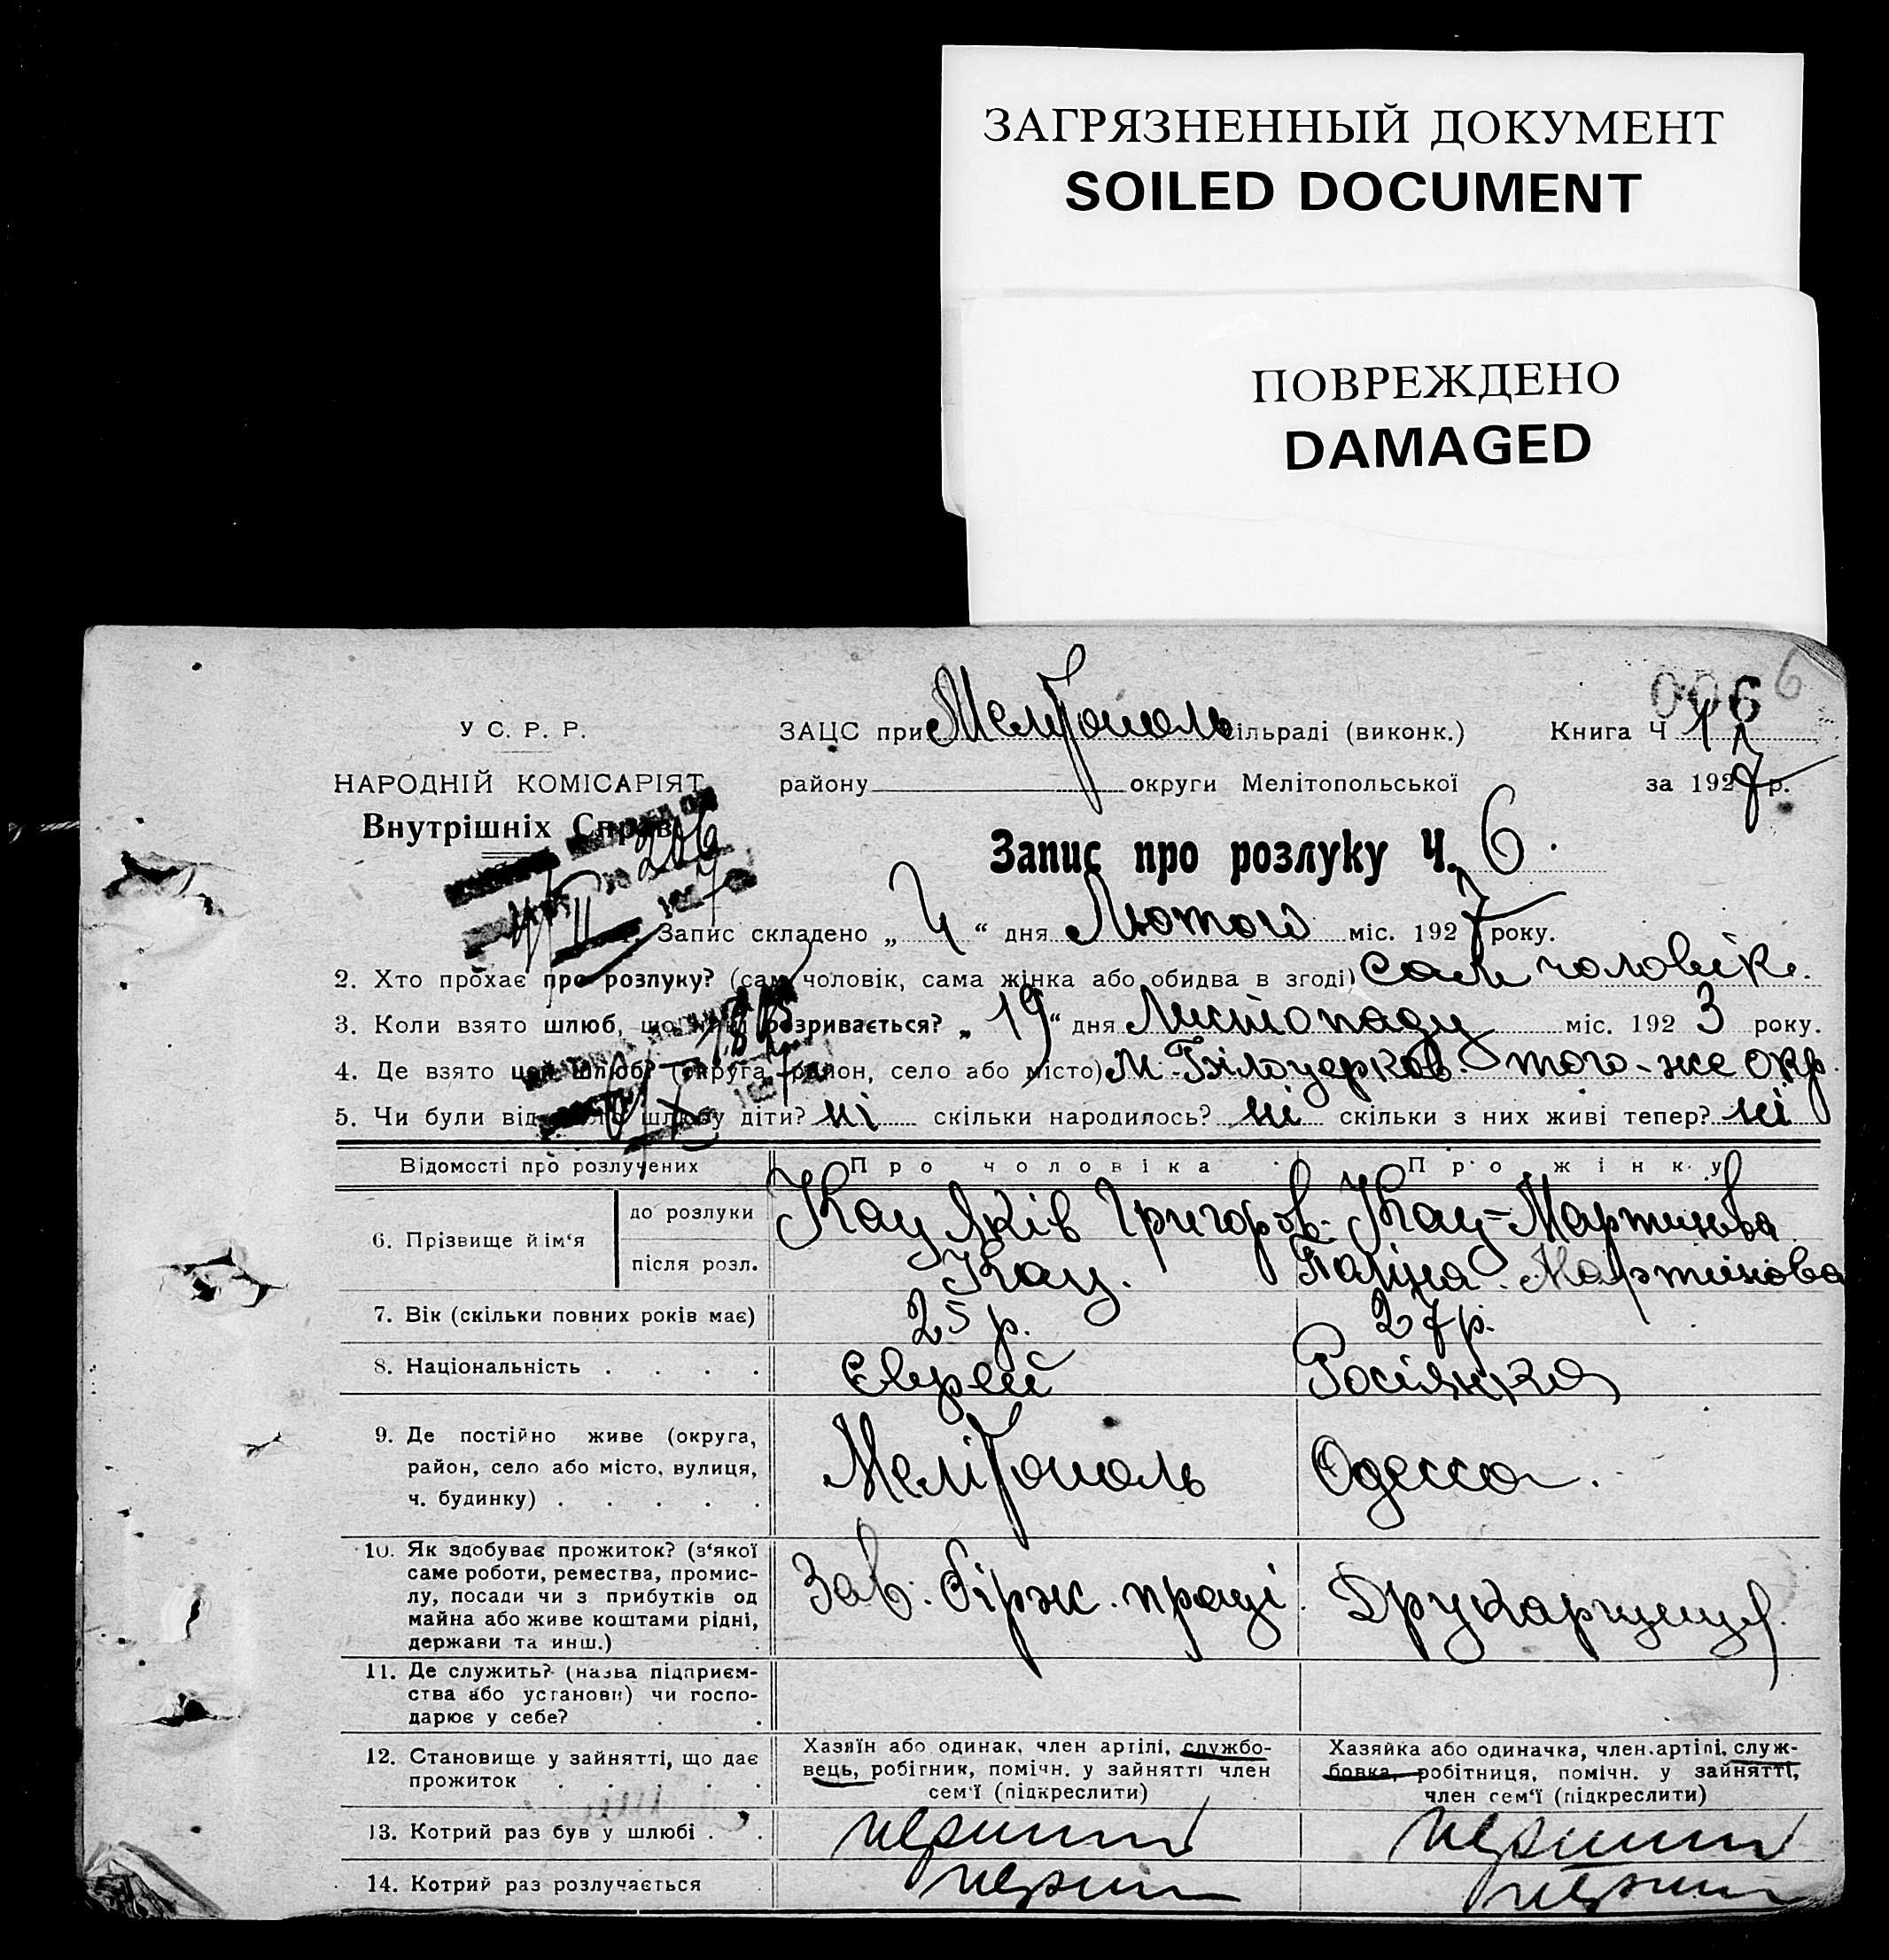 ЗАГРЯЗНЕННЫЙ ДОКУМЕНТ
SOILED DOCUMENT
ПОВРЕЖДЕНО
DAMAGED
0006 6
У С. Р. Р.
ЗАЦС при Мелітополь сільраді (виконк.)
Книга Ч 1
НАРОДНІЙ КОМІСАРІЯТ
району округи Мелітопольської
за 1927 р.
Внутрішніх Справ
Запис про розлуку Ч. 6.
1. Запис складено „ 4 “ дня Лютого міс. 1927 року.
2. Хто прохає про розлуку? (сам чоловік, сама жінка або обидва в згоді) Сам чоловік.
3. Коли взято шлюб, що розривається? „ 19 “ дня Листопаду міс. 1923 року.
4. Де взято цей шлюб? (округа, район, село або місто) м. Білоцерков. того-же окр.
5. Чи були від шлюбу діти? ні скільки народилось? ні скільки з них живі тепер? ні
Відомості про розлучених
Про чоловіка
Про жінку
6. Прізвище й ім‘я
до розлуки
Кац Яків Григоров.
Кац-Мартинова
після розл.
Кац.
Мартинова
7. Вік (скільки повних років має)
25 р.
27 р.
8. Національність . . . .
Єврей
Росіянка
9. Де постійно живе (округа,
район, село або місто, вулиця,
ч. будинку) . . . . .
Мелітополь
Одесса.
10. Як здобуває прожиток? (з‘якої
саме роботи, ремества, промис-
лу, посади чи з прибутків од
майна або живе коштами рідні,
держави та инш.) .
Зав. бірж. праці.
11. Де служить? (назва підприєм-
ства або установи) чи госпо-
дарює у себе? . .
12. Становище у зайнятті, що дає
прожиток . . . . .
Хазяїн або одинак, член артілі, службо-
вець, робітник, помічн. у зайнятті член
сем‘ї (підкреслити)
Хазяйка або одиначка, член.артілі, служ-
бовка, робітниця, помічн. у зайнятті,
член сем‘ї (підкреслити)
13. Котрий раз був у шлюбі . .
перший
перший
14. Котрий раз розлучається